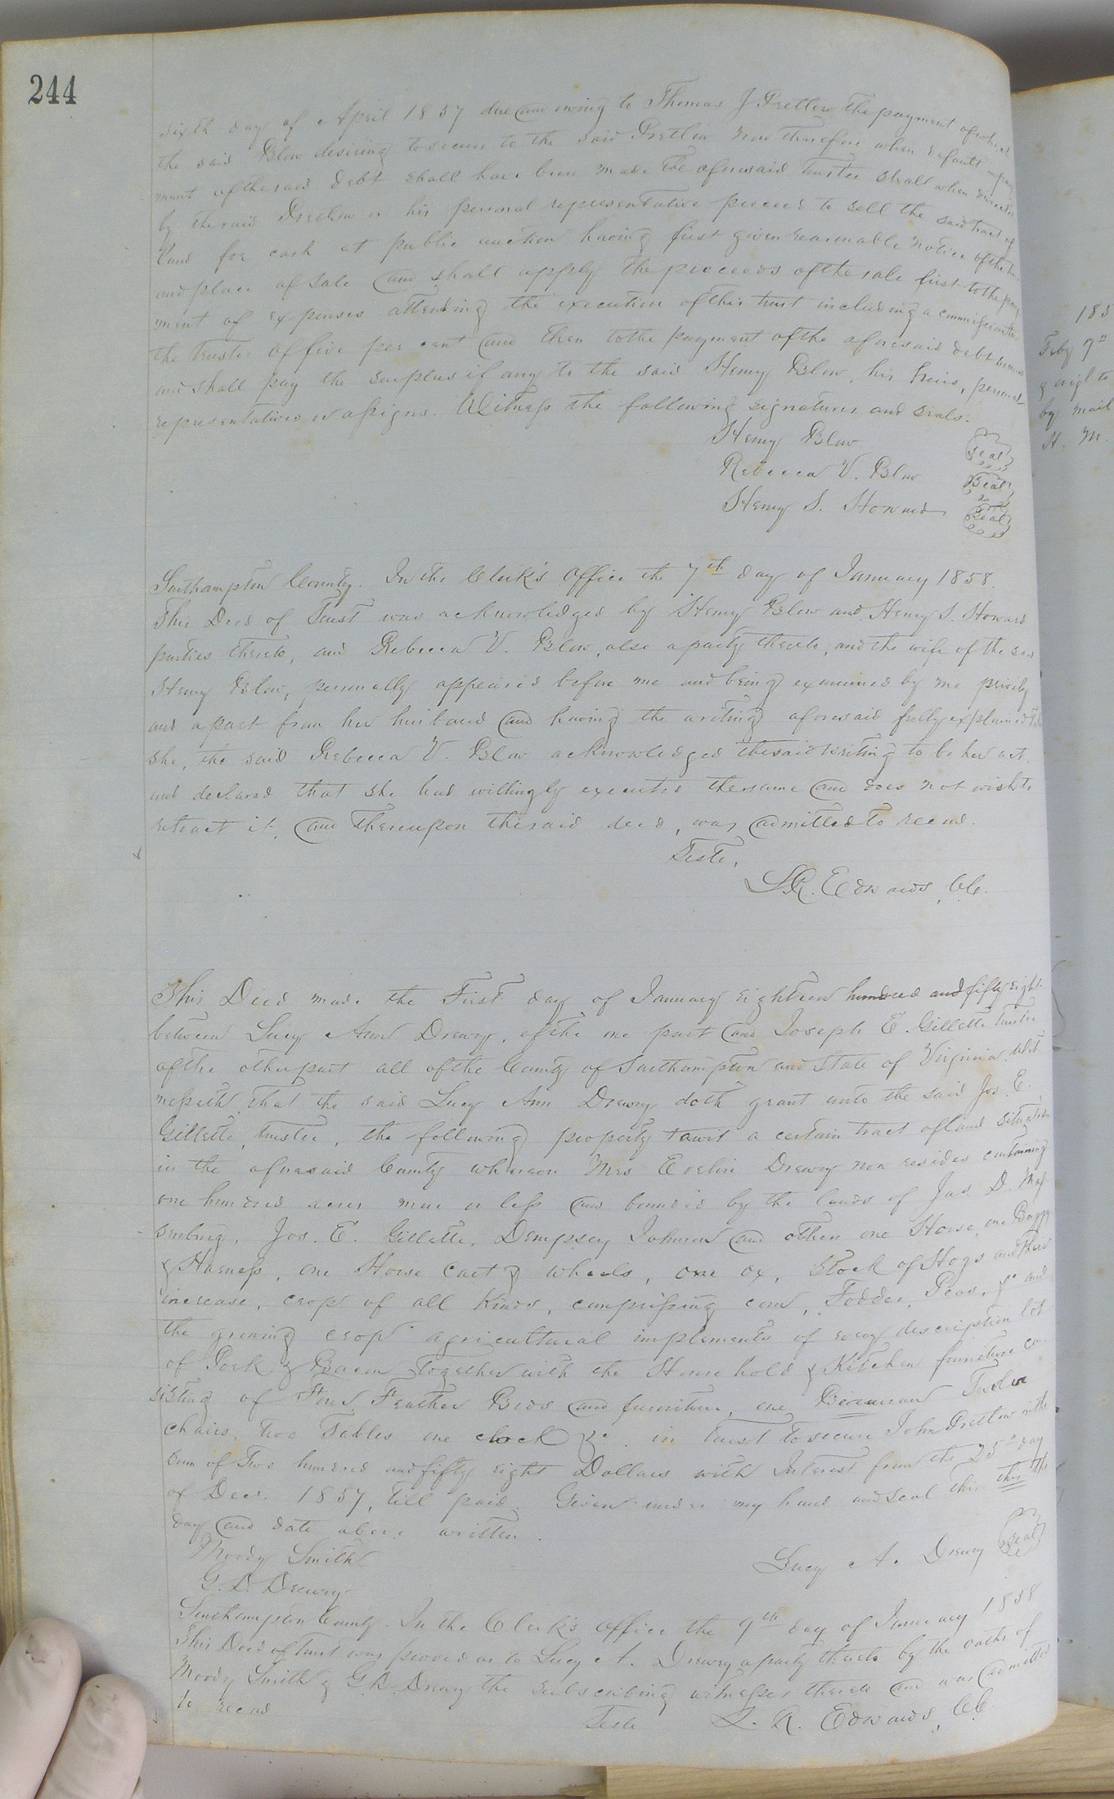 244
sixth day of April 1857 due and owing to Thomas J Pretlow the payment of
the said Blow desiring to secure to the said Pretlow Now therefore when default in pay
ment of the said debt shall have been made the aforesaid trustee shall when
by the said Pretlow or his personal representative proceed to sell the said tract of
land for cash at public auction having first given reasonable notice of the
and place of sale and shall apply the proceeds of the sale first to the pay
ment of expenses attending the execution of this trust including a commission to
the trustee of five per cent and then to the payment of the aforesaid debt
and shall pay the surplus if any to the said Henry Blow, his heirs, personal
representatives or assigns. Witness the following signatures and seals.
Henry Blow Seal
Rebecca V. Blow Seal
Henry S. Howard Seal
Southampton County. In the Clerk's Office the 7th day of January 1858.
This Deed of Trust was acknowledged by Henry Blow and Henry S. Howard
parties thereto, and Rebecca V. Blow, also a party thereto, and the wife of the said
Henry Blow, personally appeared before me and being examined by me privily
and apart from her husband and having the writing aforesaid fully explained
she, the said Rebecca V. Blow acknowledged the said writing to be her act,
and declared that she had willingly executed the same and does not wish to
retract it, and thereupon the said deed, was admitted to record.
Teste,
L. R. Edwards, Clk.
This Deed made the First day of January eighteen hundred and fifty eight
between Lucy Ann Drewry, of the one part and Joseph E. Gillette trustee
of the other part all of the County of Southampton and State of Virginia. Wit
nesseth That the said Lucy Ann Drewry doth grant unto the said Jos. E.
Gillette, trustee, the following property towit a certain tract of land situated
in the aforesaid County whereon Mrs Eveline Drewry now resides containing
one hundred acres more or less and bounded by the lands of Jas. D. Mas
senburg, Jos. E. Gillette, Dempsey Johnson and others one Horse, one Buggy
& Harness, one Horse cart & wheels, one ox, Stock of Hogs and their
increase, crops of all kinds, comprising corn, Fodder, Peas, &c and
the growing crop agricultural implements of every description lot
of Pork & Bacon together with the Household & Kitchen furniture con
sisting of Four Feather Beds and furniture, one Beaureau Twelve
chairs, two Tables one clock &c. in trust to secure John Pretlow in the
sum of Two hundred and fifty eight Dollars with Interest from the 25th day
of Decr. 1857, till paid. Given under my hand and seal this the
day and date above written.
Moody Smith
Lucy A. Drewry Seal
G. D. Drewry
Southampton County. In the Clerk's office the 9th day of January 1858
This Deed of trust was proved as to Lucy A. Drewry a party thereto by the oaths of
Moody Smith & G. D. Drewry the subscribing witnesses thereto and was admitted
to record
Teste L. R. Edwards, Clk.
185
Feby 9th
by mail
H. M.